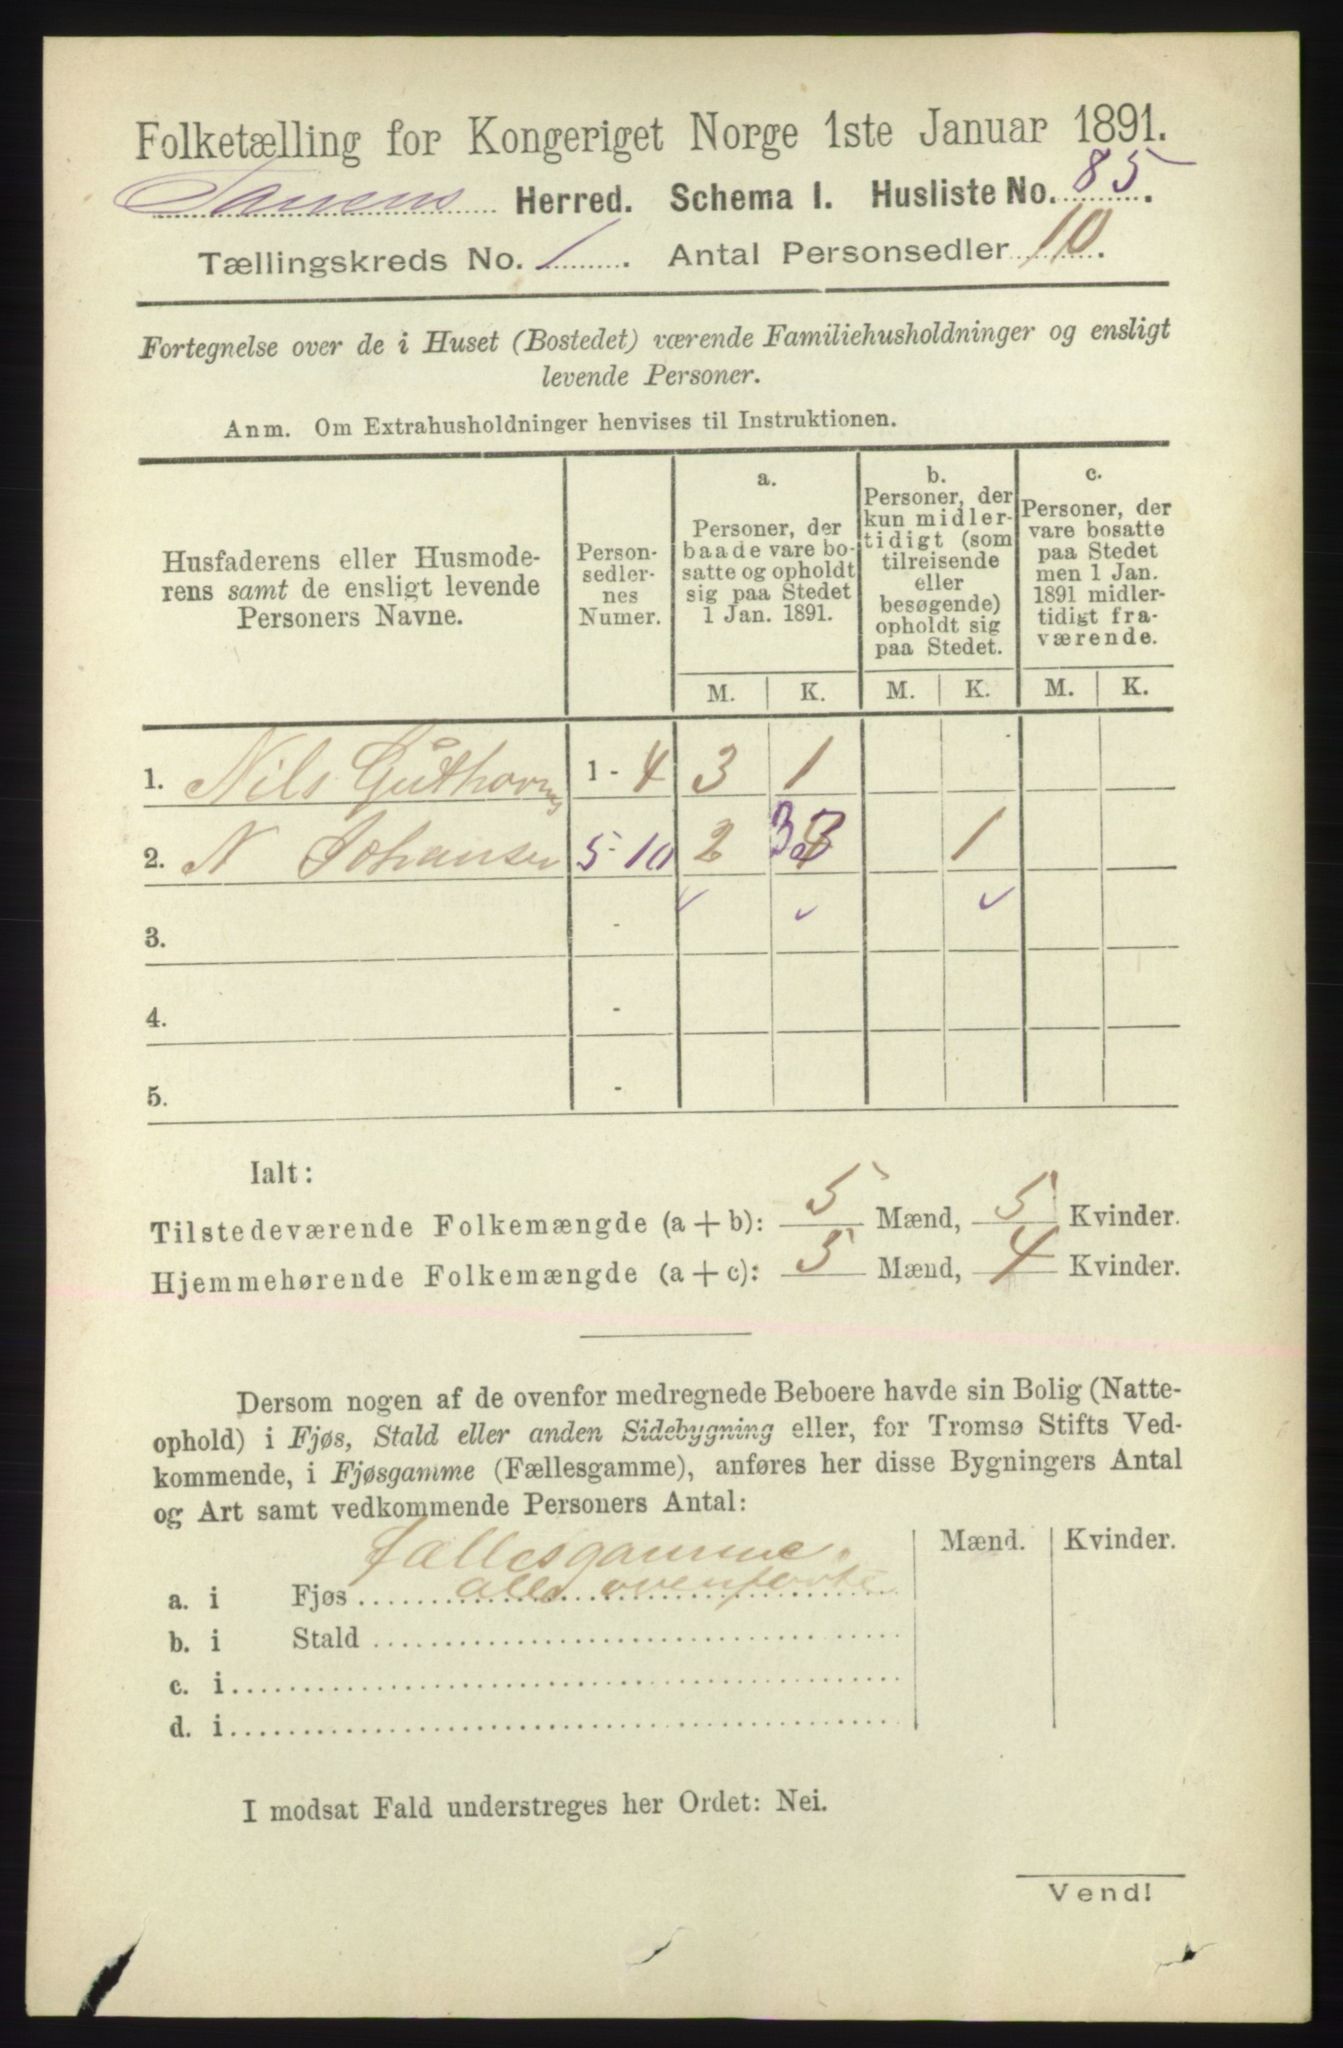 Folketælling for Kongeriget Norge 1ste Januar 1891.
Tanens Herred. Schema I. Husliste No. 85.
Tællingskreds No. 1. Antal Personsedler 10.
Fortegnelse over de i Huset (Bostedet) værende Familiehusholdninger og ensligt
levende Personer.
Anm. Om Extrahusholdninger henvises til Instruktionen.
Husfaderens eller Husmode-
rens samt de ensligt levende
Personers Navne.
Person-
sedler-
nes
Numer.
a.
Personer, der
baade vare bo-
satte og opholdt
sig paa Stedet
1 Jan. 1891.
b.
Personer, der
kun midler-
tidigt (som
tilreisende
eller
besøgende)
opholdt sig
paa Stedet.
c.
Personer, der
vare bosatte
paa Stedet
men 1 Jan.
1891 midler-
tidigt fra-
værende.
M. K. M. K. M. K.
1. Nils Guthorms 1 - 4 3 1
2. N Johansen 5 - 10 2 3 1
3. -
4. -
5. -
Ialt:
Tilstedeværende Folkemængde (a + b): 5 Mænd, 5 Kvinder.
Hjemmehørende Folkemængde (a + c): 5 Mænd, 4 Kvinder.
Dersom nogen af de ovenfor medregnede Beboere havde sin Bolig (Natte-
ophold) i Fjøs, Stald eller anden Sidebygning eller, for Tromsø Stifts Ved-
kommende, i Fjøsgamme (Fællesgamme), anføres her disse Bygningers Antal
og Art samt vedkommende Personers Antal:
Mænd. Kvinder.
fællesgamme
a. i Fjøs alle ovenførte
b. i Stald
c. i
d. i
I modsat Fald understreges her Ordet: Nei.
Vend!